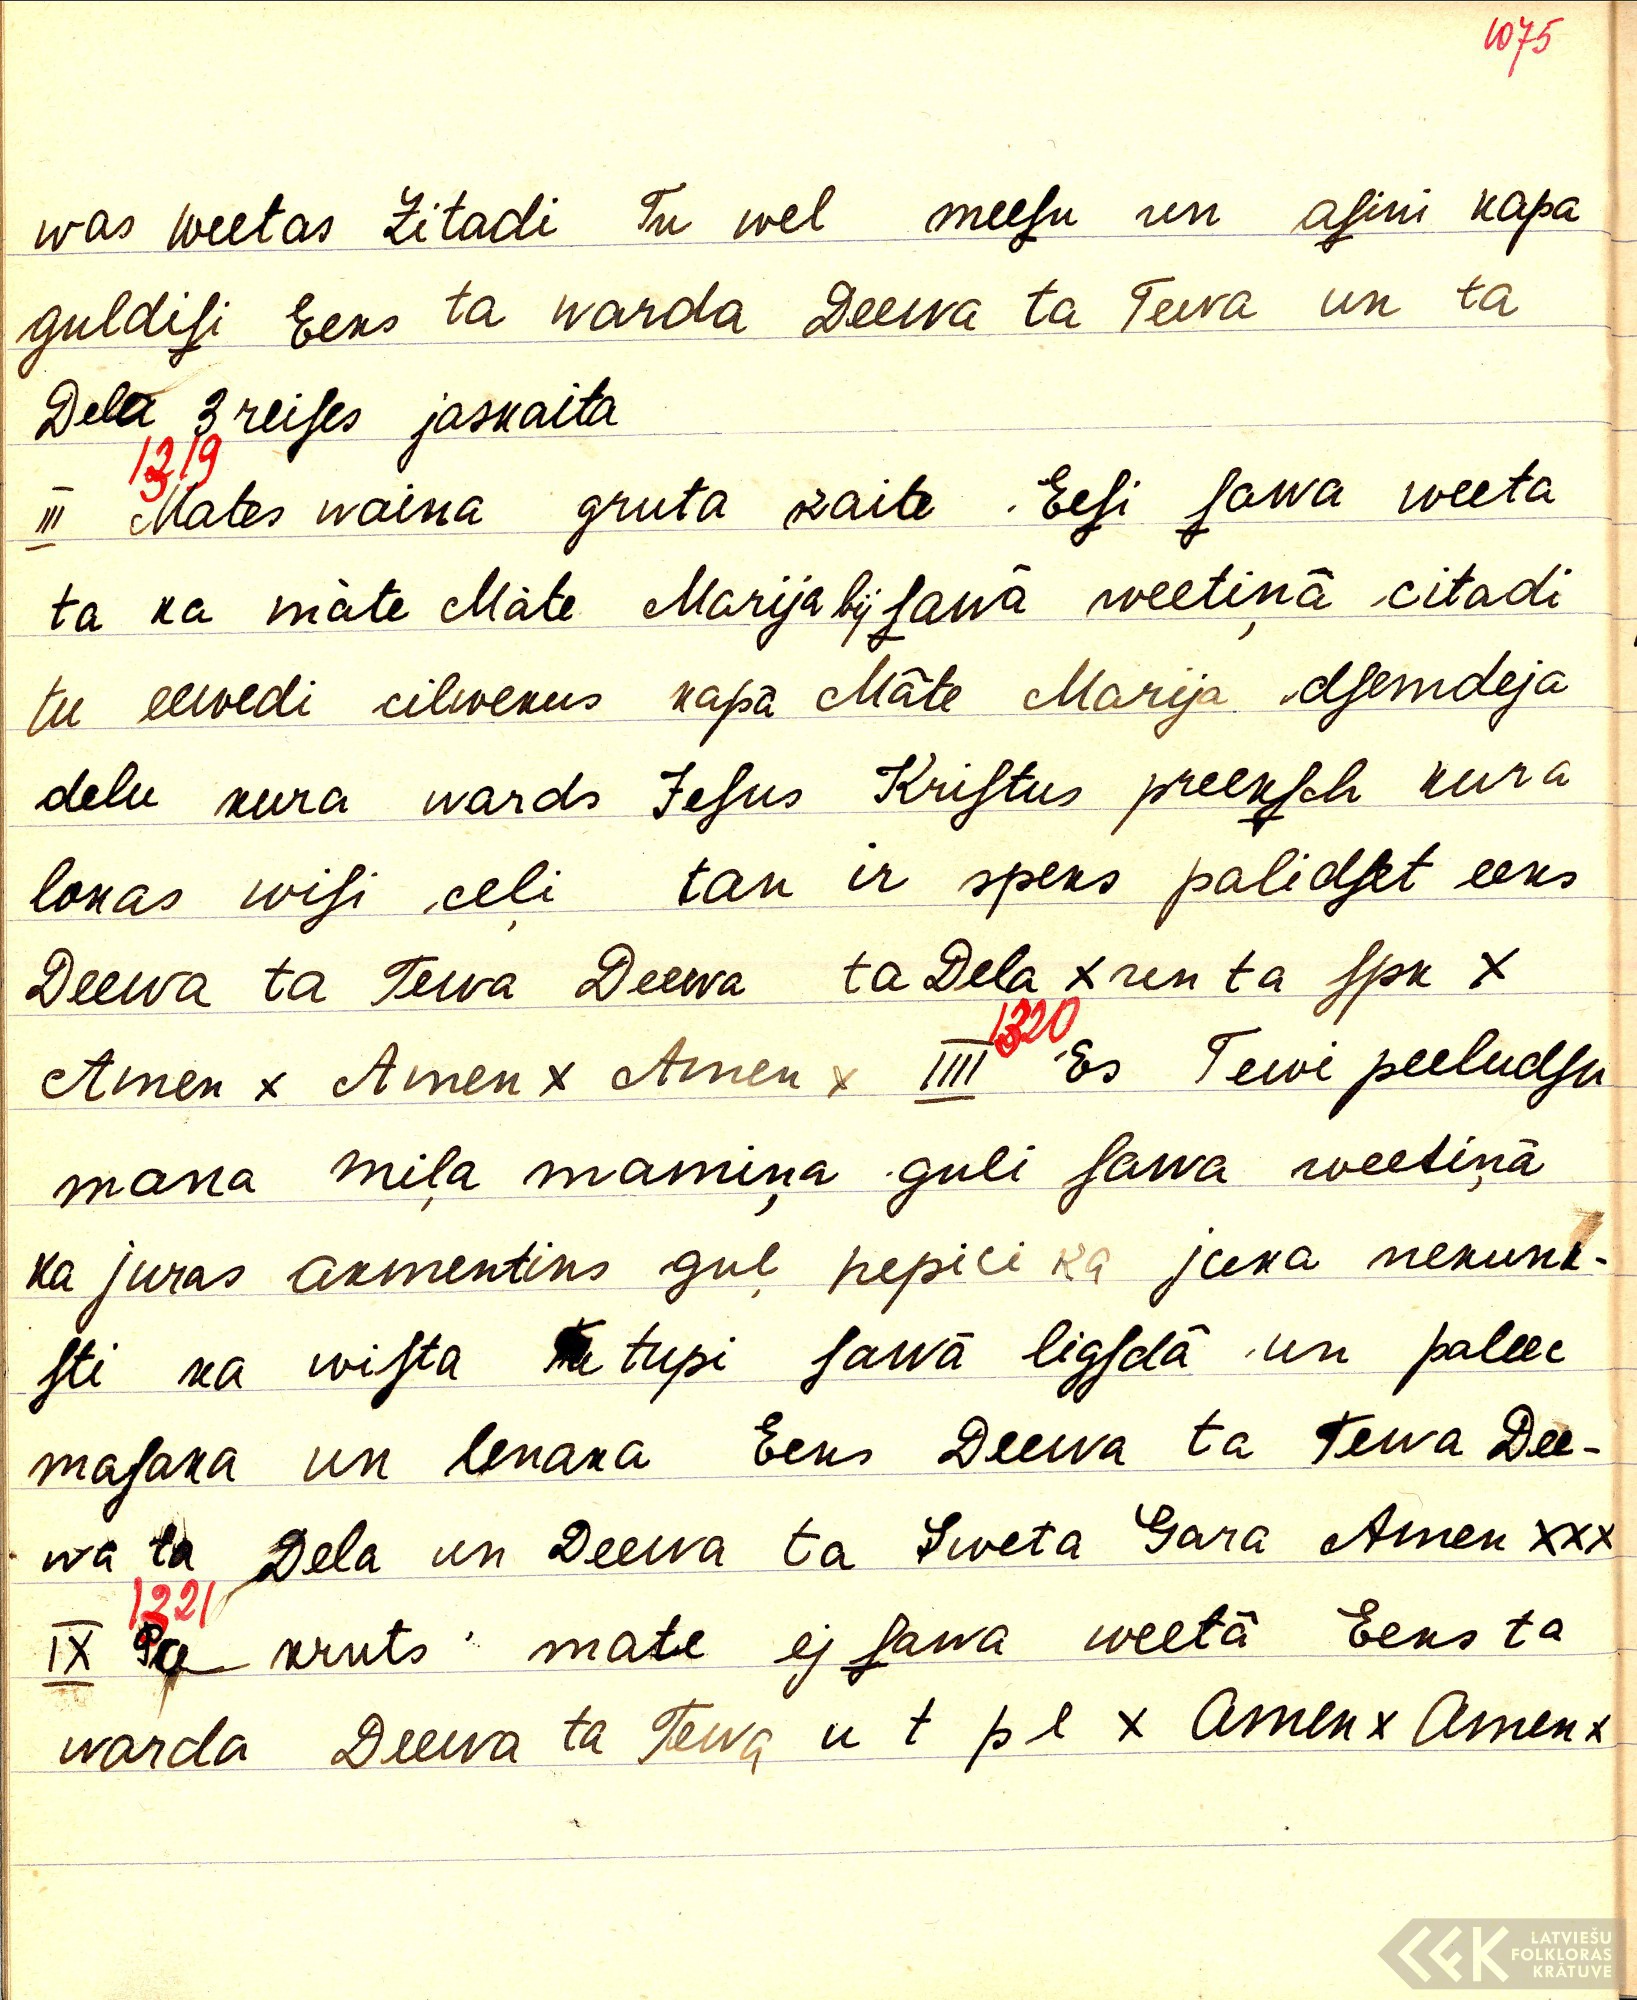 1075
was weetas Zitadi Tu wel meeſu un aſini kapa
guldiſi Eeks ta warda Deewa ta Tewa un ta
Dela 3 reiſes jaskaita
1319
III Mates waina gruta kaite Eeſi ſawa weeta
ta ka màte Màte Marija bij ſawā weetiņā citadi
tu eewedi cilwekus kapā Māte Marija dſemdeja
delu kura wards Jeſus Kriſtus preekſch kura
lokas wiſi ceļi tan ir speks palidſet eeks
Deewa ta Tewa Deewa ta Dela x un ta ſpk x
1320
Amen x Amen x Amen x IIII Es Tewi peeludſu
mana miļa mamiņa guli ſawa weetiņā
ka juras akmentins guļ nepici ka juka nekunk-
ſti ka wiſta tupi ſawā ligſdā un paleec
maſaka un lenaka Eeks Deewa ta Tewa Dee-
wa ta Dela un Deewa ta Sweta Gara Amen xxx
1321
IX kruts mate ej ſawa weetā Eeks ta
warda Deewa ta Tewa u t p l x Amen x Amen x
LATVIEŠU
FOLKLORAS
KRĀTUVE